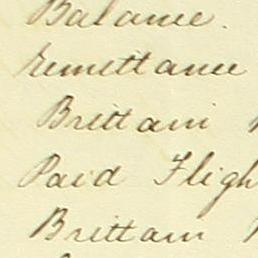 Balance.
Remittance
Brittain
Paid Fligh
Brittain